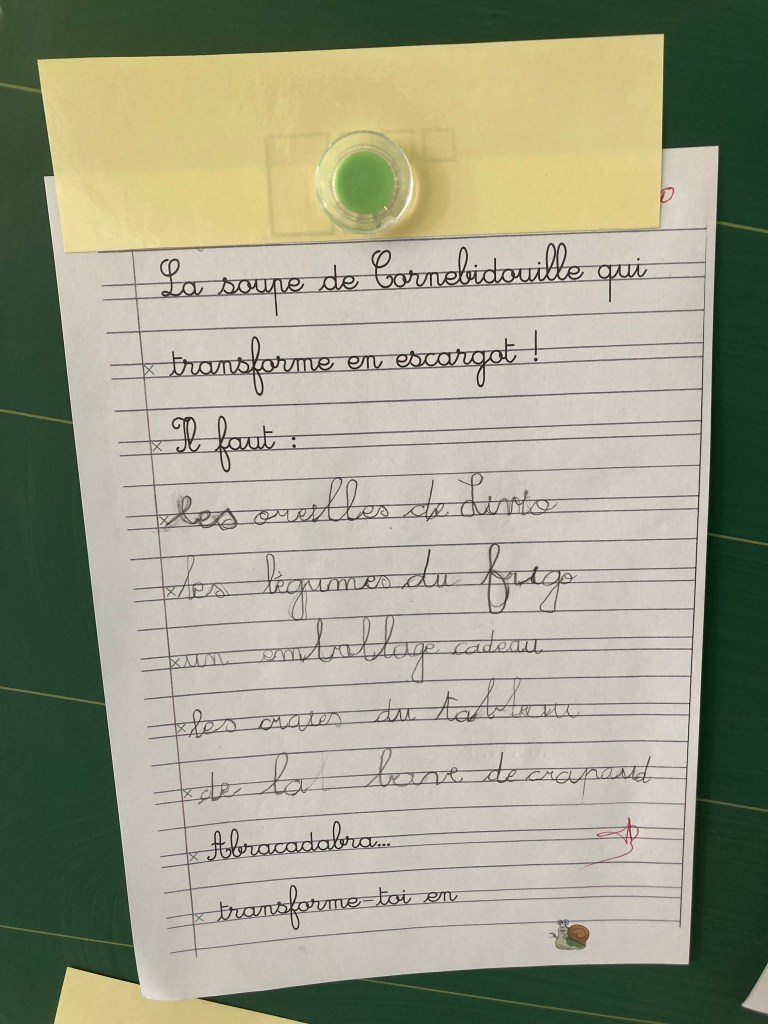 La soupe de Cornebidouille qui
transforme en escargot !
Il faut :
les oreilles de Livio
les légumes du frigo
un emballage cadeau
les craies du tableau
de la bave de crapaud
Abracadabra...
transforme-toi en